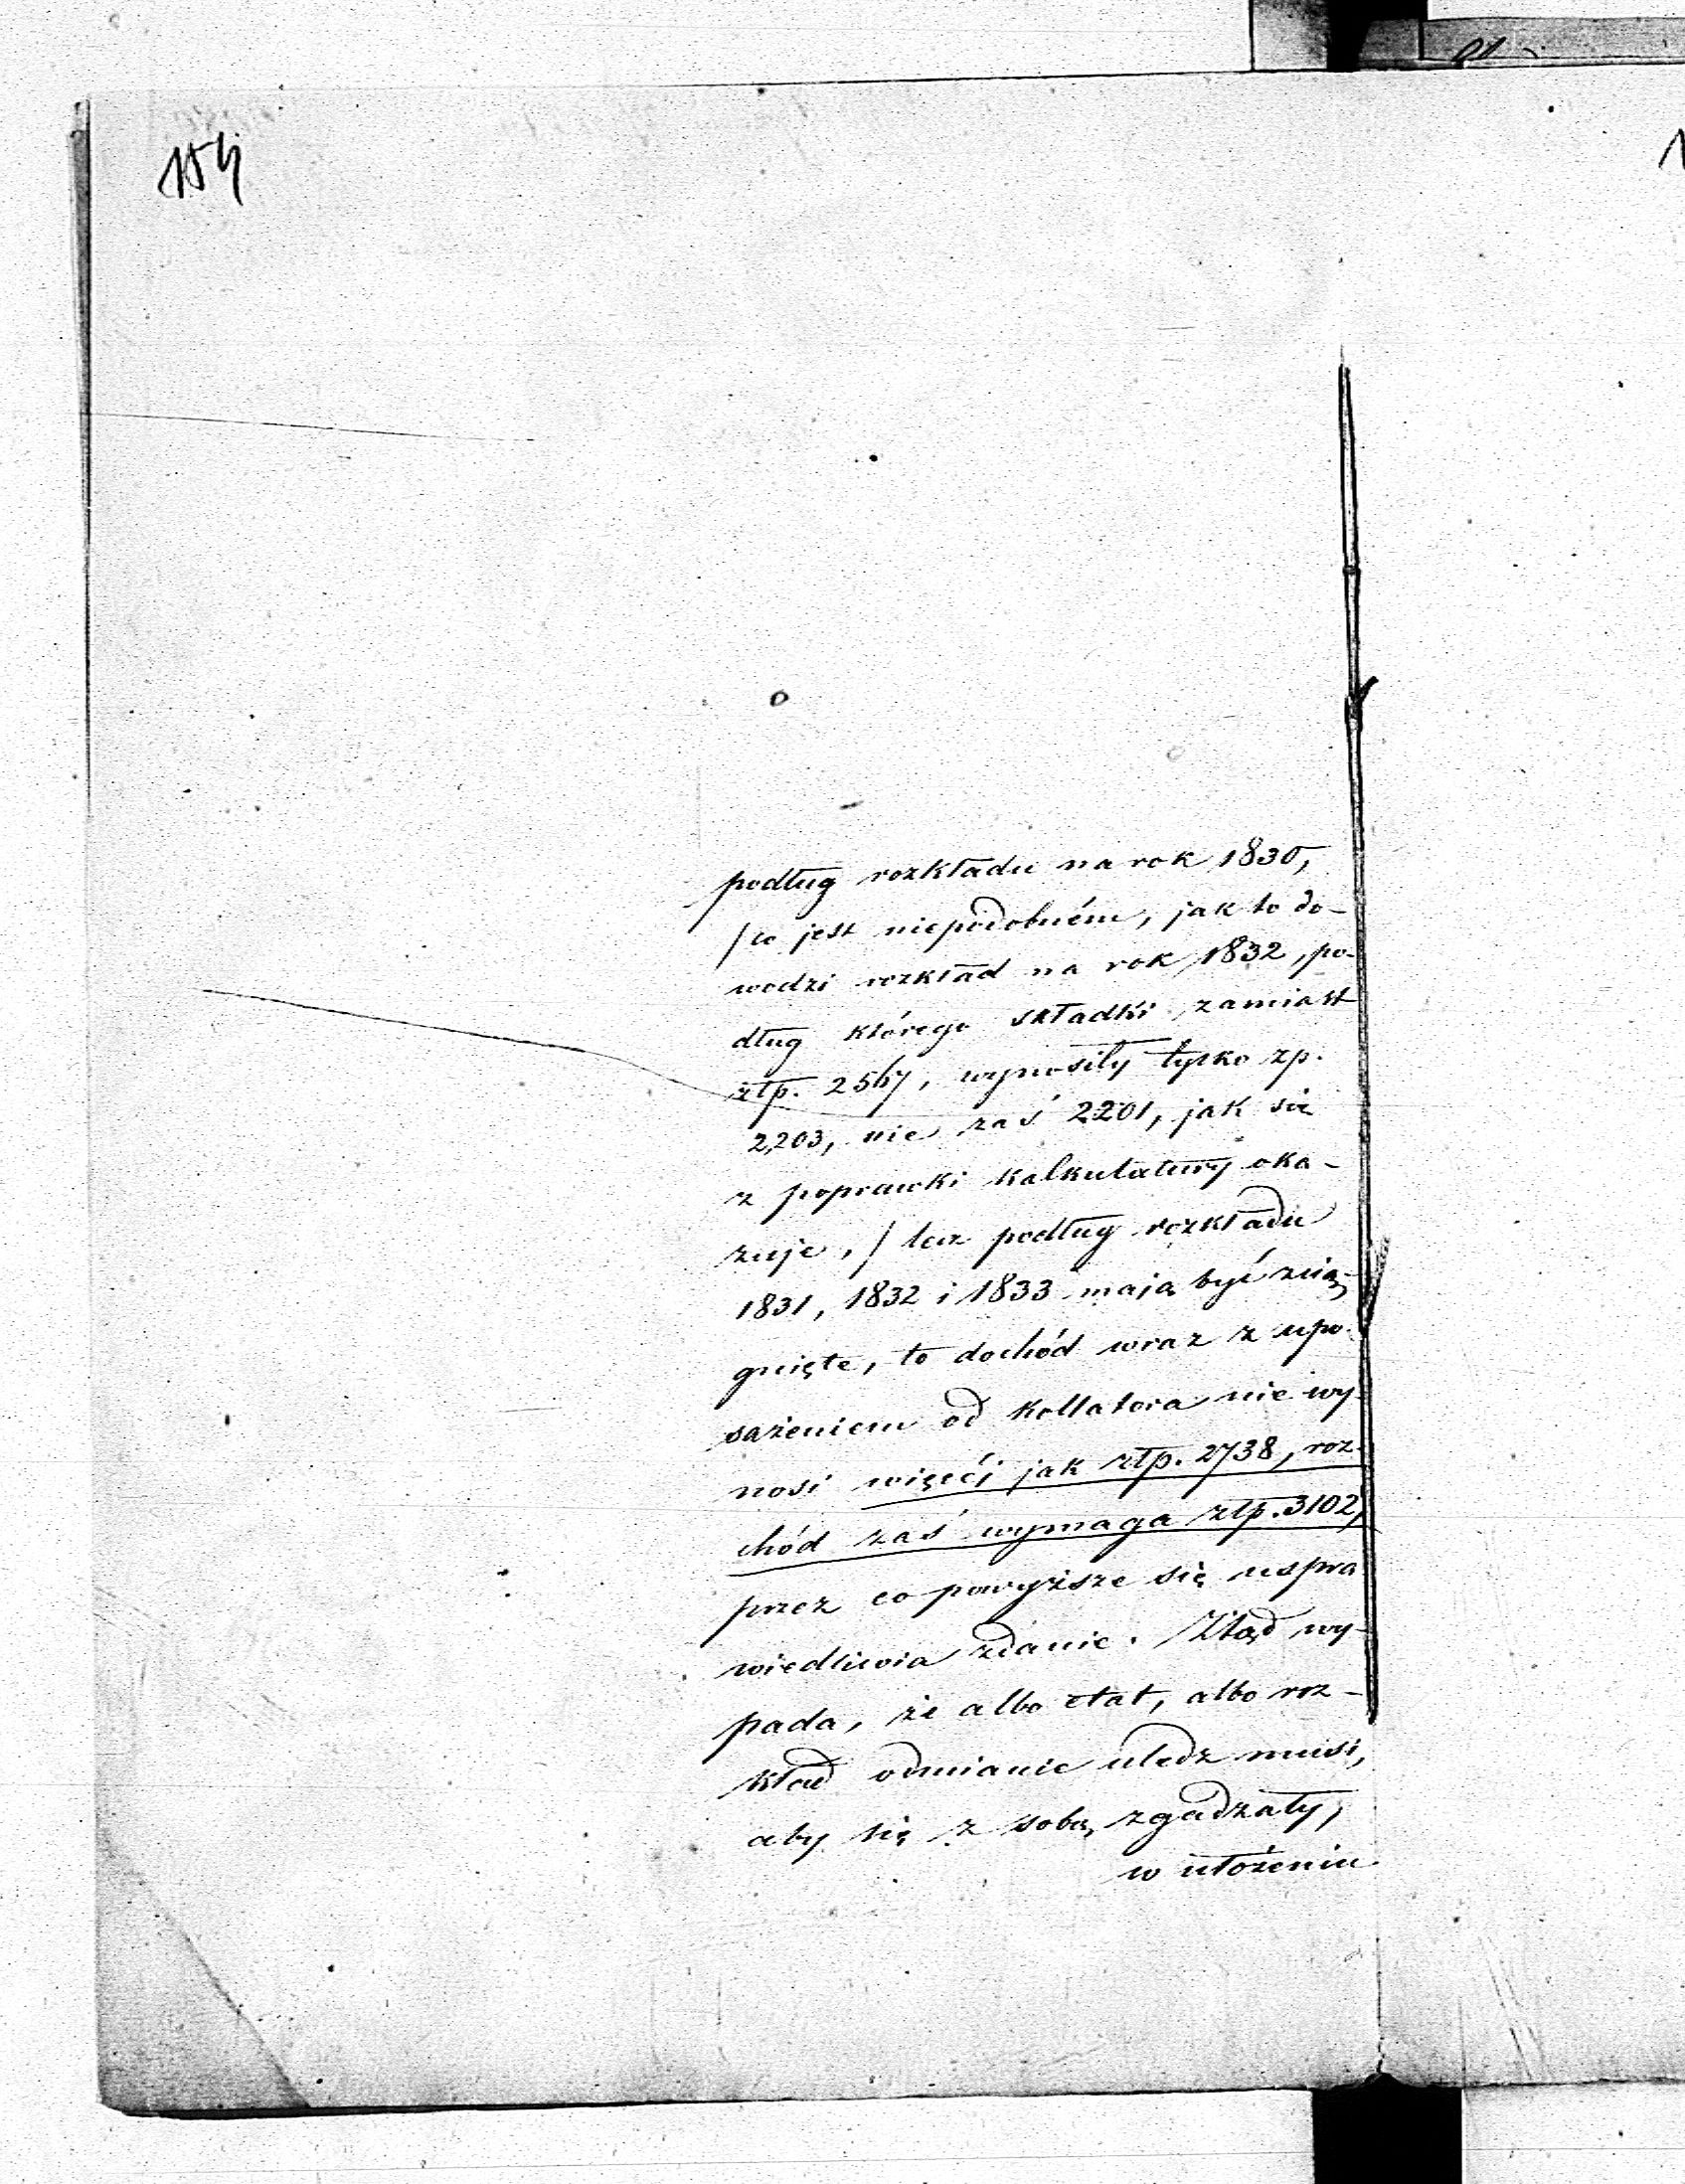 154
podług rozkładu na rok 1830,
/co jest niepodobném, jak to do-
wodzi rozkład na rok 1832, po-
dług którego składki zamiast
złp. 2567, wynosiły tylko zp.
2,203, nie zaś 2201, jak się
z poprawki kalkulatury oka-
zuje, / lecz podług rozkładu
1831, 1832 i 1833 mają być ścią-
gnięte, to dochód wraz z upo-
sażeniem od kollatora nie wy-
nosi więcéj jak złp. 2738, roz-
chód zaś wymaga złp. 3102,
przez co powyższe się uspra
wiedliwia zdanie. Ztąd wy-
pada, że albo etat, albo roz-
kład odmianie uledz musi,
aby się z sobą zgadzały,
w ułożeniu